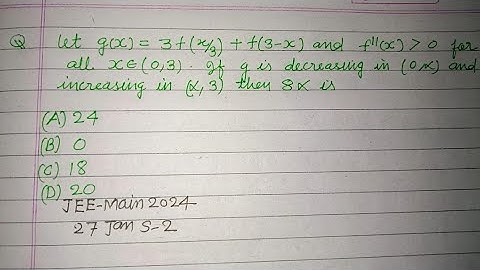 Q let g(x) = 3f(x/3) + f(3-x) and f''(x) > 0 for
all x∈(0,3). If g is decreasing in (0,α) and
increasing in (α,3) then 8α is
(A) 24
(B) 0
(C) 18
(D) 20
JEE-Main 2024
27 Jan S-2